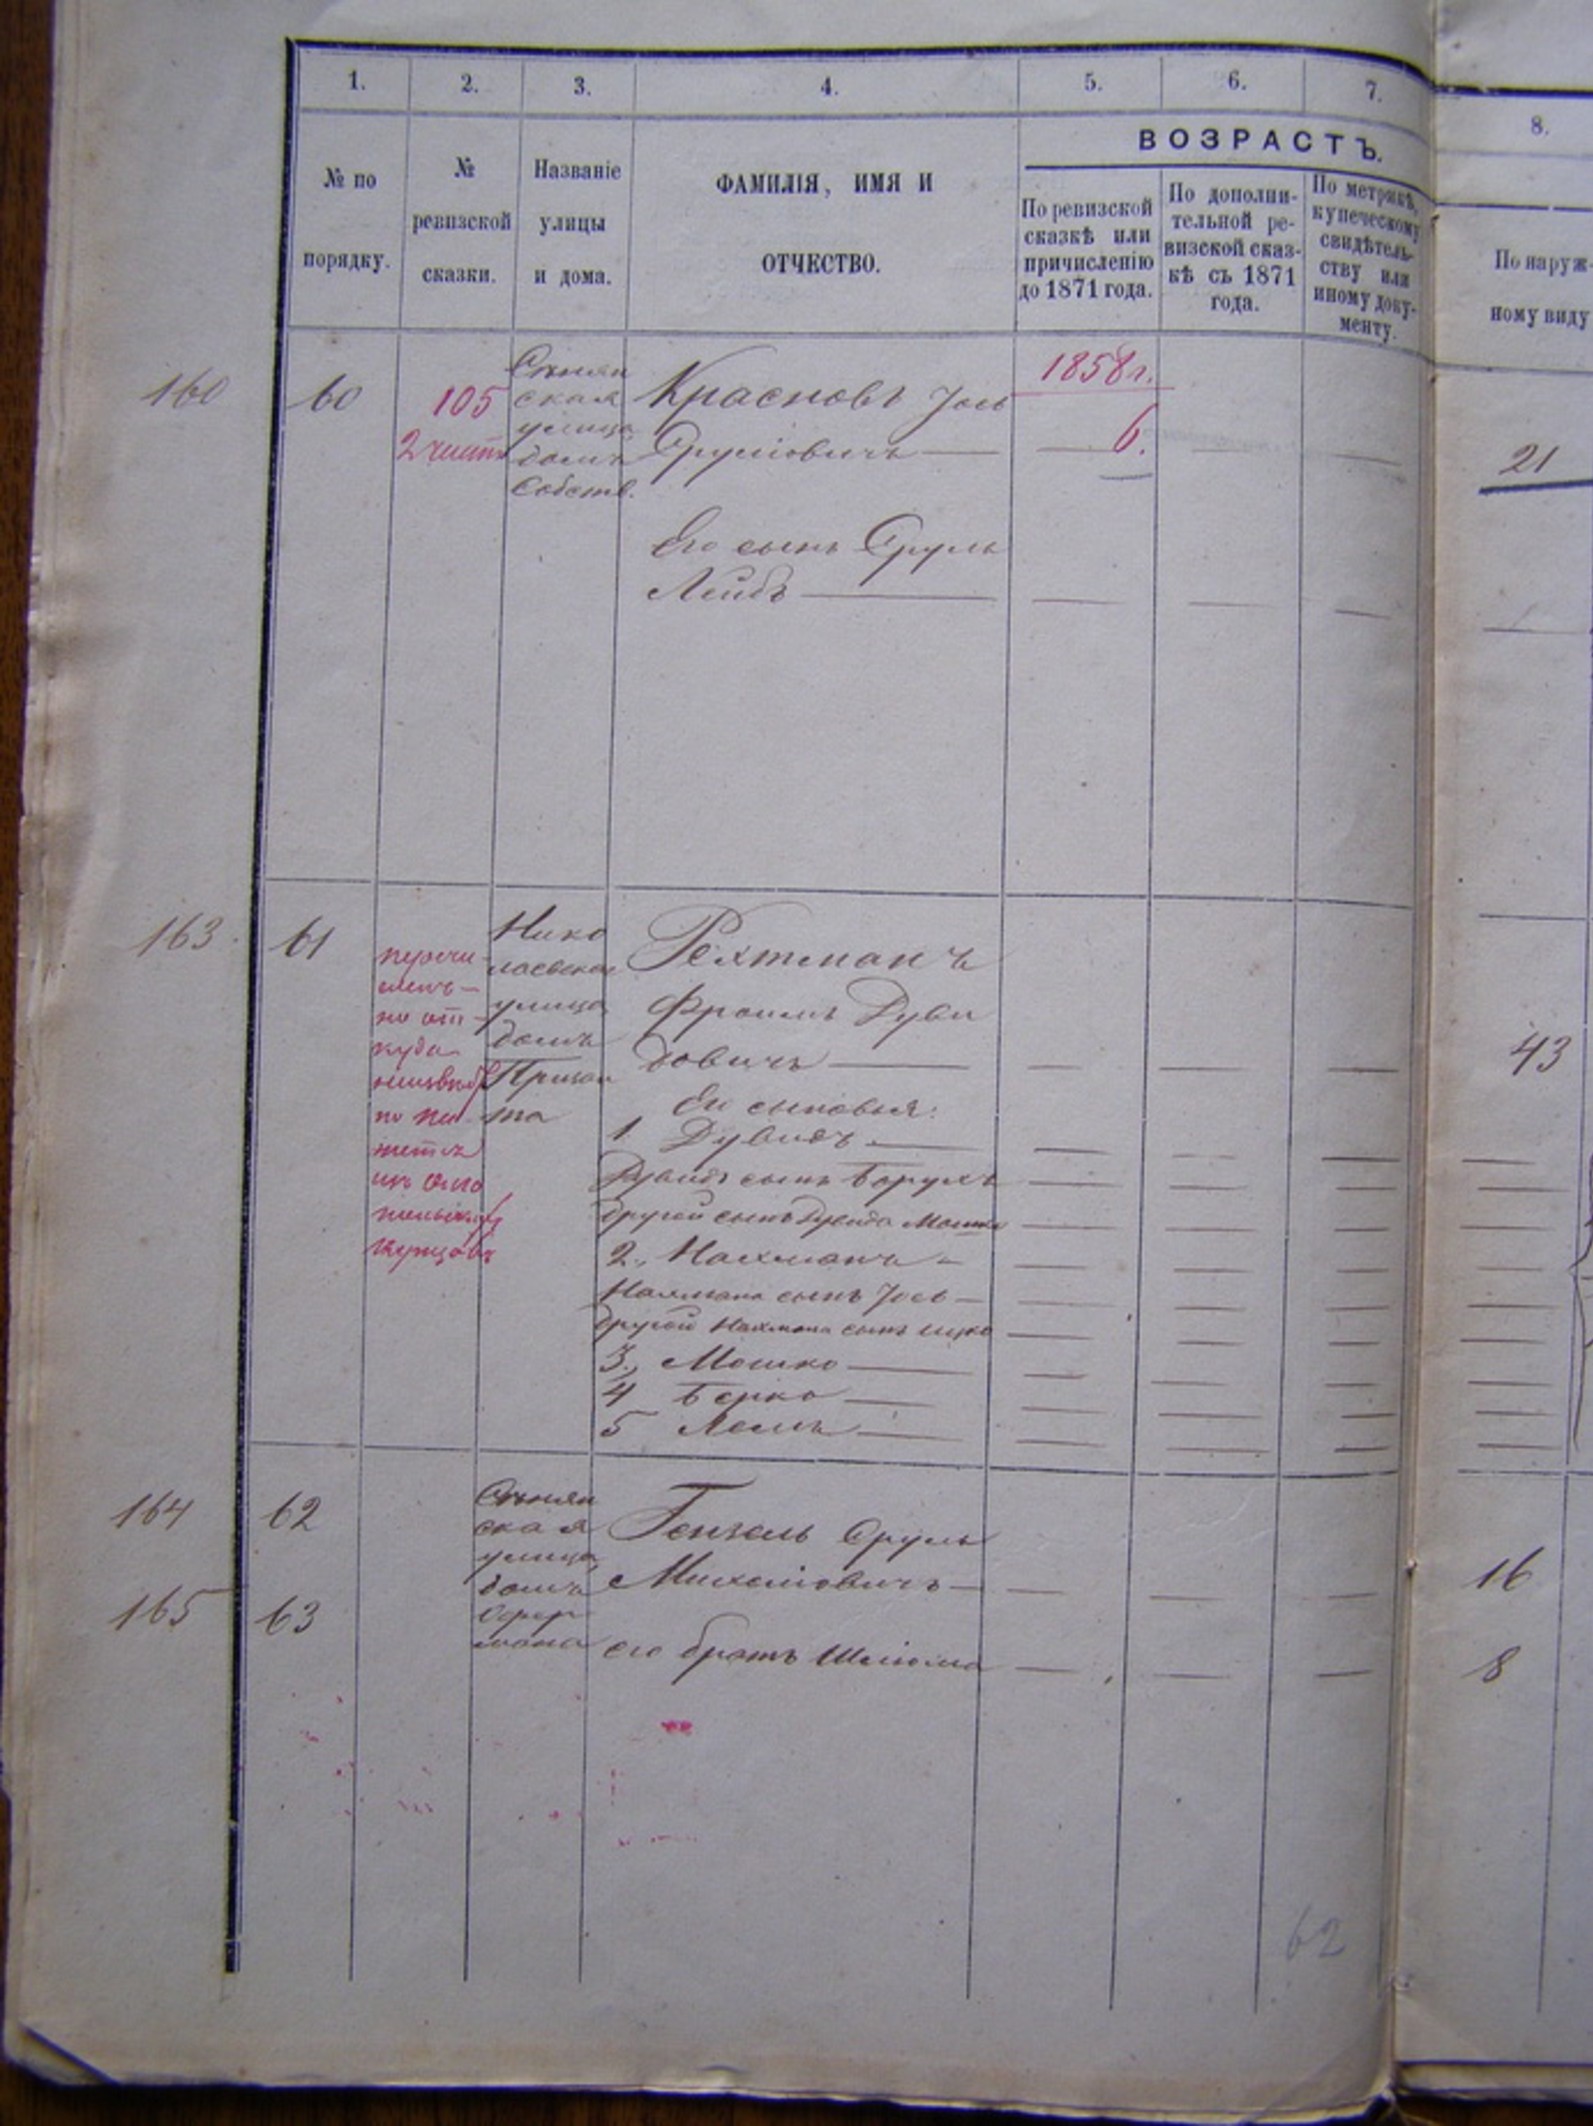 1. 2. 3. 4. 5. 6. 7. 8.
№ по порядку.
№ ревизской сказки.
Названіе улицы и дома.
ФАМИЛІЯ, ИМЯ И ОТЧЕСТВО.
ВОЗРАСТЪ.
По ревизской сказкѣ или причисленію до 1871 года.
По дополни-тельной ре-визской сказ-кѣ съ 1871 года.
По метрикѣ, купеческому свидѣтель-ству или иному доку-менту.
По наруж-ному виду
160 60
105
2 части
ская
улица
домъ
собств.
Красновъ Іось
Сруліовичъ
1858 г.
6.
21
Его сынъ Сруль
Лейбъ
163 61
но от
куда
купцовъ
Нико
лаевская
улица
домъ
Рехтманъ
Фроимъ Дуви
довичъ
43
Его сыновья:
1 Дувидъ
Дувида сынъ Борухъ
другой сынъ Дувида Мошко
2., Нахманъ
Нахмана сынъ Іось
другой Нахмана сынъ Ицко
3., Мошко
4 Берко
5
164 62
ская
улица
домъ
Гензель Сруль
Михеліовичъ
16
165 63
его братъ Шліома
8
62